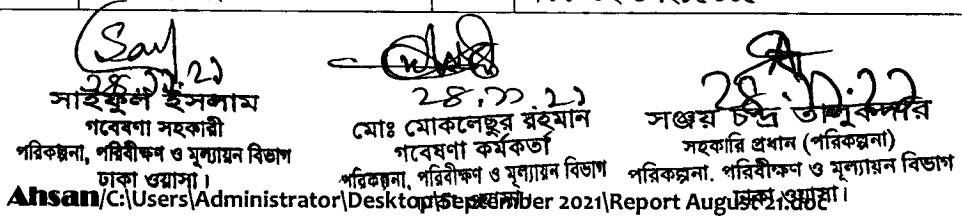 ২৪.১১.২১
সাইফুল ইসলাম
গবেষণা সহকারী
পরিকল্পনা, পরিবীক্ষণ ও মূল্যায়ন বিভাগ
ঢাকা ওয়াসা।
২৪.১১.২১
মোঃ মোকলেছুর রহমান
গবেষণা কর্মকর্তা
পরিকল্পনা, পরিবীক্ষণ ও মূল্যায়ন বিভাগ
সঞ্জয় চন্দ্র তালুকদার
সহকারি প্রধান (পরিকল্পনা)
পরিকল্পনা, পরিবীক্ষণ ও মূল্যায়ন বিভাগ
ঢাকা ওয়াসা।
Ahsan/C:\Users\Administrator\Desktop\September 2021\Report August 21.doc